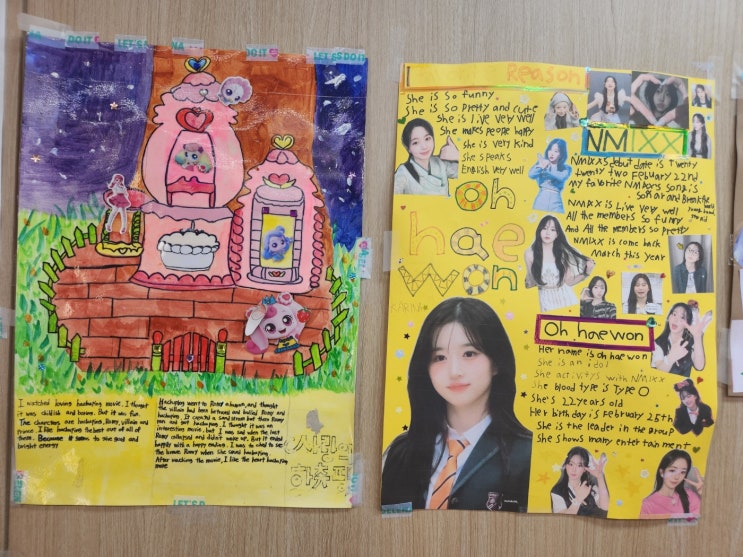 DO IT
LET'S
DO IT
LET'S DO IT
I watched loving hachuping movie. I thought
it was childish and boring. But it was fun.
The characters are hachuping, Romy, villain and
prince. I like hachuping the best out of all of
them. Because it seems to give good and
bright energy
Hachuping went to Romy
the villain had been
pan and got hachuping. I thought it was an
interesting movie, but I was sad when the last
Romy collapsed and didn't wake up. But it ended
happily with a happy ending. I was so sad to see
the brave Romy when she saved hachuping.
After waching the movie, I like the heart hachuping
more.
사랑의
하츄핑
LET'S
I
Reason
She is so funny.
She is so pretty and cute
She is live very well
She makes people happy
She is very kind
She speaks
English very well
Oh
hae
won
KARINA
NMIXX
NMIXXs debut date is twenty
twenty two Febuary 22nd
my favorite NMIXXs song is
Sonar and Breakthe
NMIXX is Live very well
All the members so funny
And All the members so pretty
NMIXX is come back
March this year
Oh hae won
Her name is oh hae won
She is an idol
She activitys with NMIXX
She blood type is Type O
She's 22 years old
Her birthday is February 25th
She is the leader in the Group
She shows many entertainment